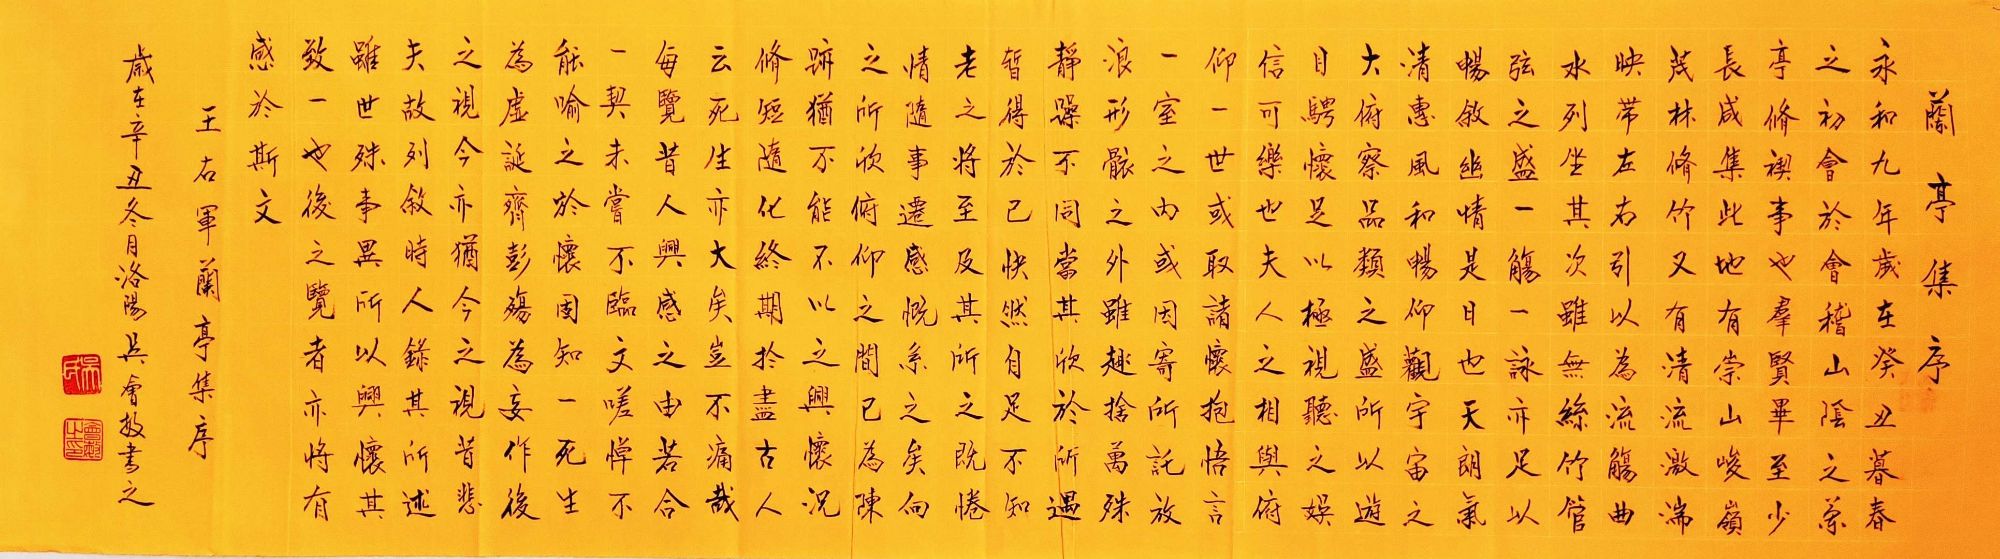 蘭亭集序
永和九年歲在癸丑暮春
之初會於會稽山陰之蘭
亭脩禊事也羣賢畢至少
長咸集此地有崇山峻嶺
茂林脩竹又有清流激湍
映帶左右引以為流觴曲
水列坐其次雖無絲竹管
弦之盛一觴一詠亦足以
暢敘幽情是日也天朗氣
清惠風和暢仰觀宇宙之
大俯察品類之盛所以遊
目騁懷足以極視聽之娛
信可樂也夫人之相與俯
仰一世或取諸懷抱悟言
一室之內或因寄所託放
浪形骸之外雖趣捨萬殊
靜躁不同當其欣於所遇
暫得於己快然自足不知
老之將至及其所之既惓
情隨事遷感慨系之矣向
之所欣俯仰之間已為陳
跡猶不能不以之興懷況
脩短隨化終期於盡古人
云死生亦大矣豈不痛哉
每覽昔人興感之由若合
一契未嘗不臨文嗟悼不
能喻之於懷固知一死生
為虛誕齊彭殤為妄作後
之視今亦猶今之視昔悲
夫故列敘時人錄其所述
雖世殊事異所以興懷其
致一也後之覽者亦將有
感於斯文
王右軍蘭亭集序
歲在辛丑冬月洛陽吳會敏書之
吳氏
會敏之印